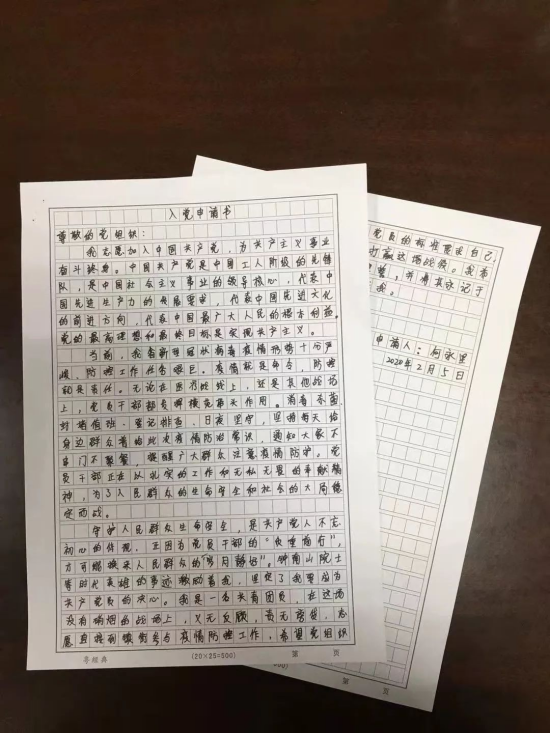 入党申请书
尊敬的党组织：
我志愿加入中国共产党，为共产主义事业
奋斗终身。中国共产党是中国工人阶级的先锋
队，是中国社会主义事业的领导核心，代表中
国先进生产力的发展要求，代表中国先进文化
的前进方向，代表中国最广大人民的根本利益。
党的最高理想和最终目标是实现共产主义。
当前，我省新型冠状病毒疫情形势十分严
峻，防控工作任务艰巨。疫情就是命令，防控
就是责任。无论在医疗战线上，还是其他战场
上，党员干部都发挥模范带头作用。
封堵值班、登记排查、日夜坚守，坚持每天给
身边群众普及此次疫情防治常识，通知大家不
串门不聚餐，提醒广大群众注意疫情防护。党
员干部正在以扎实的工作和无私无畏的奉献精
神，为了人民群众的生命安全和社会的大局稳
定而战。
守护人民群众生命安全，是共产党人不忘
初心的体现。正因为党员干部的“负重前行”，
方可能换来人民群众的“岁月静好”。钟南山院士
等时代英雄的事迹激励着我，坚定了我要成为
共产党员的决心。我是一名共青团员，在这场
没有硝烟的战场上，义无反顾，责无旁贷，志
愿直接到镇街参与疫情防控工作，希望党组织
粤经典
(20×25=500)
第 页
党员的标准要求自己，
打赢这场战役。我希
，并将其永记于
我。
申请人：何
2020年2月5日
第 页